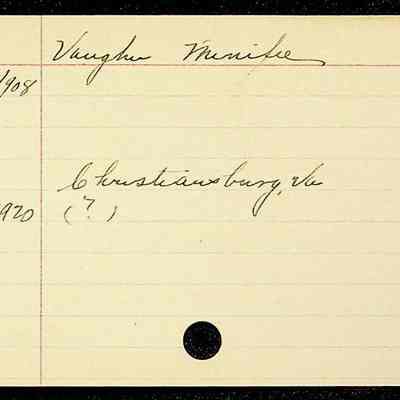 Vaughn Minifee
1908
Christiansburg, Va
1920 (?)